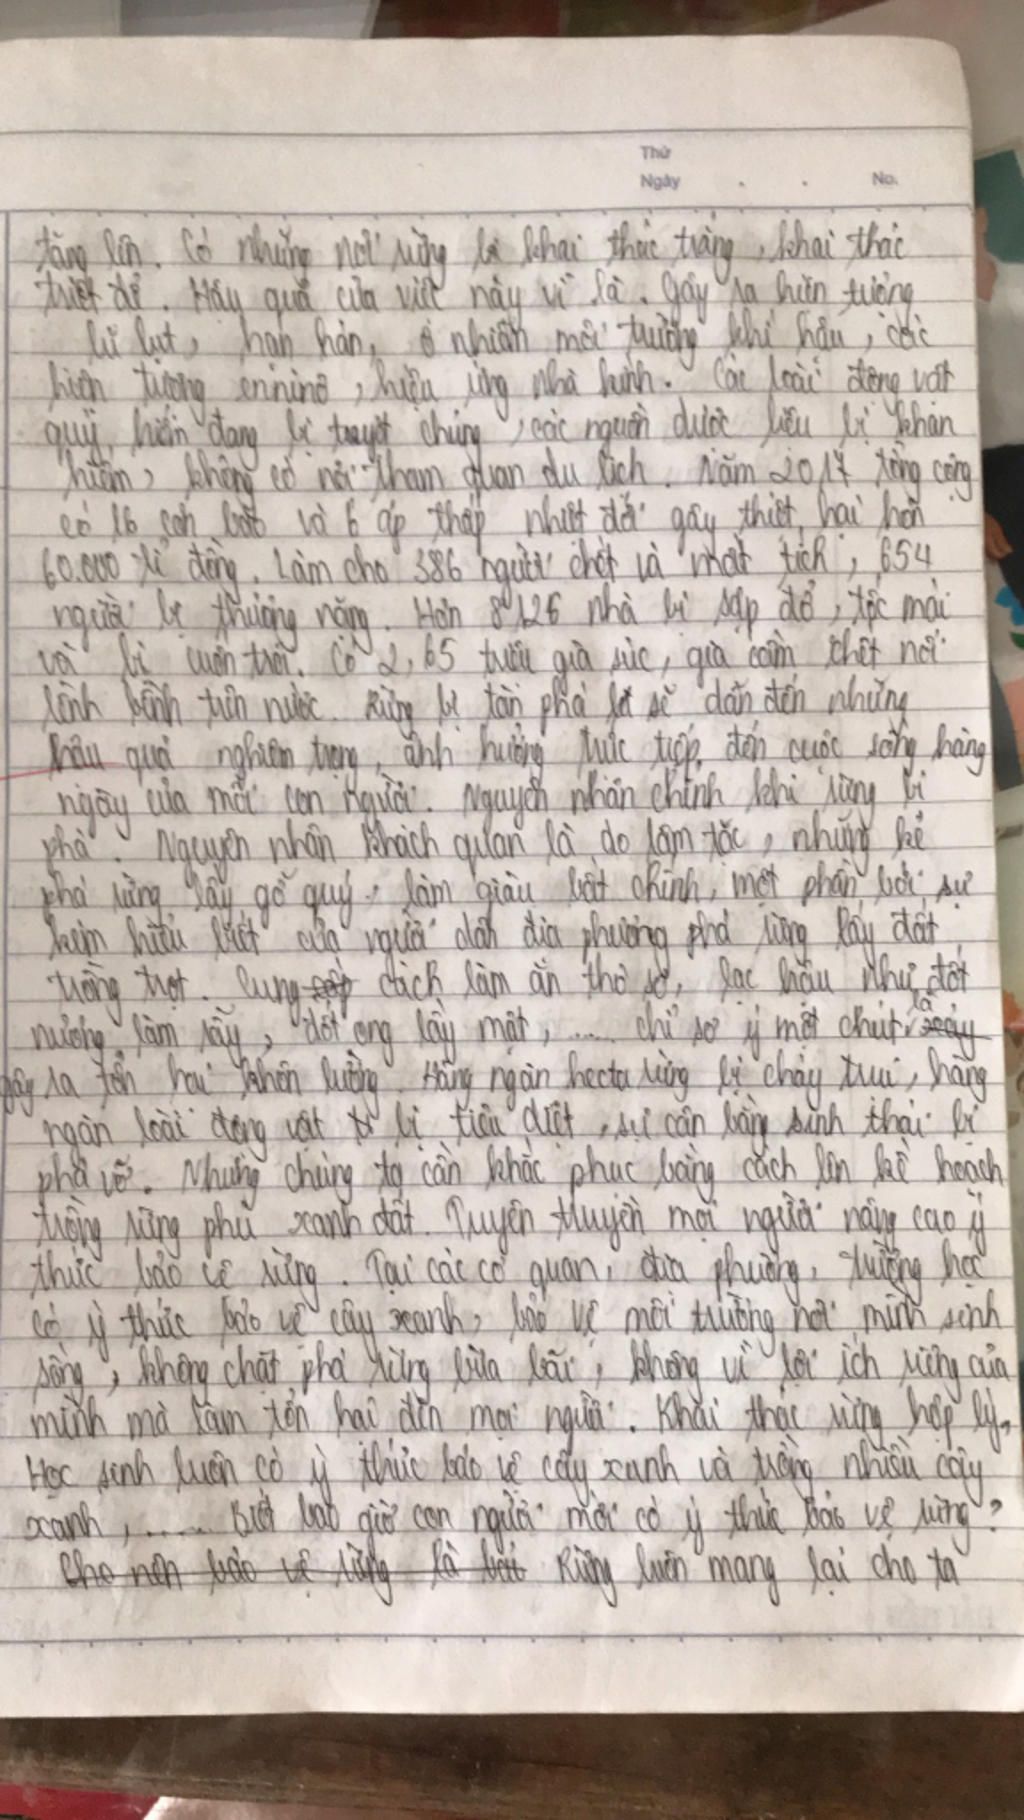 Thứ
Ngày . . No.
tăng lên. Có những nơi rừng bị khai thác trắng, khai thác
triệt để. Hậy quả của việc này vì là. Gây ra hiện tượng
lũ lụt, hạn hán, ô nhiễn môi trường khí hậu, các
hiện tượng enninô, hiệu ứng nhà kính. Các loài động vật
quý, hiếm đang bị tuyệt chủng, các nguồn dược liệu bị khan
hiếm, không có nơi tham quan du lịch. Năm 2017 tổng cộng
có 16 cơn bão và 6 áp thấp nhiệt đới gây thiệt hại hơn
60.000 tỉ đồng. Làm cho 386 người chết và mất tích, 654
người bị thương nặng. Hơn 8126 nhà bị sập đổ, tốc mái
và bị cuốn trôi. Có 2,65 triệu gia súc, gia cầm chết nổi
lềnh bềnh trên nước. Rừng bị tàn phá sẽ dẫn đến những
hậu quả nghiêm trọng, ảnh hưởng trực tiếp đến cuộc sống hàng
ngày của mỗi con người. Nguyên nhân chính khi rừng bị
phá. Nguyên nhân khách quan là do lâm tặc, những kẻ
phá rừng lấy gỗ quý, làm giàu bất chính, một phần bởi sự
kém hiểu biết của người dân địa phương phá rừng lấy đất
trồng trọt. Cung cách làm ăn thô sơ, lạc hậu như đốt
nương làm rẫy, đốt ong lấy mật, ..... chỉ sơ ý một chút là
gây ra tổn hại khôn lường. Hàng ngàn hecta rừng bị cháy trụi, hàng
ngàn loài động vật bị tiêu diệt, sự cân bằng sinh thái bị
phá vỡ. Nhưng chúng ta cần khắc phục bằng cách lên kế hoạch
trồng rừng phủ xanh đất. Tuyên truyền mọi người nâng cao ý
thức bảo vệ rừng. Tại các cơ quan, địa phương, trường học
có ý thức bảo vệ cây xanh, bảo vệ môi trường nơi mình sinh
sống, không chặt phá rừng bừa bãi, không vì lợi ích riêng của
mình mà làm tổn hại đến mọi người. Khai thác rừng hợp lý.
Học sinh luôn có ý thức bảo vệ cây xanh và trồng nhiều cây
xanh, ...... Biết bao giờ con người mới có ý thức bảo vệ rừng?
Cho nên bảo vệ rừng là Rừng luôn mang lại cho ta